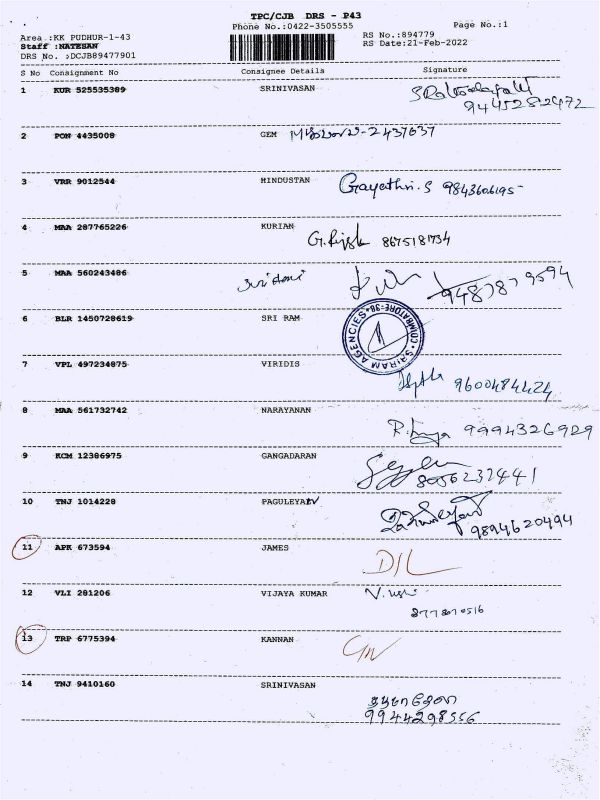 TPC/CJB DRS - P43
Phone No.:0422-3505555 Page No.:1
Area :KK PUDHUR-1-43 RS No.:894779
Staff :NATESAN RS Date:21-Feb-2022
DRS No. :DCJB89477901
S No Consignment No Consignee Details Signature
1 KUR 525535389 SRINIVASAN
9445282472
2 PON 4435008 GEM 2437637
3 VRR 9012544 HINDUSTAN Gayathri.S 9843606195
4 MAA 287765226 KURIAN
8675181734
5 MAA 560243486 9487879594
6 BLR 1450728619 SRI RAM SRIRAM AGENCIES COIMBATORE-38
7 VPL 497234875 VIRIDIS
9600484424
8 MAA 561732742 NARAYANAN
9994326929
9 KCM 12386975 GANGADARAN
8056232441
10 TNJ 1014228 PAGULEYAN
9894620494
11 APK 673594 JAMES D/L
12 VLI 281206 VIJAYA KUMAR
13 TRP 6775394 KANNAN
14 TNJ 9410160 SRINIVASAN
9944298556